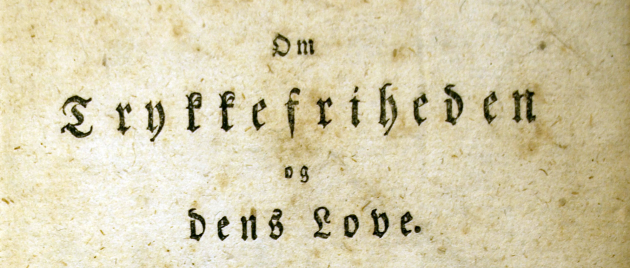 Om
Trykkefriheden
og
dens Love.